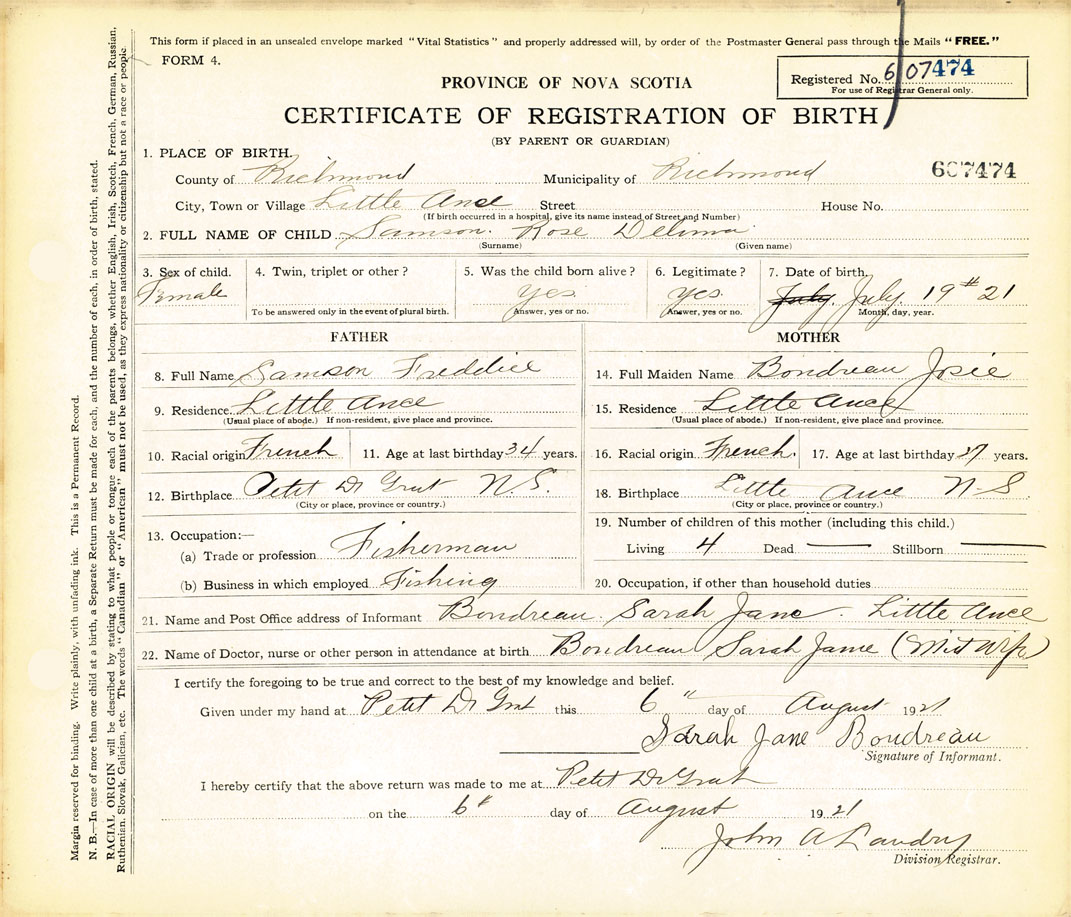 This form if placed in an unsealed envelope marked "Vital Statistics" and properly addressed will, by order of the Postmaster General pass through the Mails "FREE."
FORM 4.
Registered No. 607474
For use of Registrar General only.
PROVINCE OF NOVA SCOTIA
CERTIFICATE OF REGISTRATION OF BIRTH
(BY PARENT OR GUARDIAN)
607474
1. PLACE OF BIRTH.
County of Richmond Municipality of Richmond
City, Town or Village Little Ance Street House No.
(If birth occurred in a hospital, give its name instead of Street and Number)
2. FULL NAME OF CHILD Samson. Rose Delima
(Surname) (Given name)
3. Sex of child. 4. Twin, triplet or other? 5. Was the child born alive? 6. Legitimate? 7. Date of birth.
Female yes. yes. July. July. 19th 21
To be answered only in the event of plural birth. Answer, yes or no. Answer, yes or no. Month, day, year.
FATHER
8. Full Name Samson Freddie
9. Residence. Little Ance
(Usual place of abode.) If non-resident, give place and province.
10. Racial origin French 11. Age at last birthday 34 years.
12. Birthplace Petit De Grat N.S.
(City or place, province or country.)
13. Occupation:—
(a) Trade or profession Fisherman
(b) Business in which employed Fishing
MOTHER
14. Full Maiden Name Boudreau Josie
15. Residence Little Ance
(Usual place of abode.) If non-resident, give place and province.
16. Racial origin French. 17. Age at last birthday 27 years.
18. Birthplace Little Ance N-S
(City or place, province or country.)
19. Number of children of this mother (including this child.)
Living 4 Dead — Stillborn —
20. Occupation, if other than household duties
21. Name and Post Office address of Informant Boudreau Sarah Jane. Little Ance
22. Name of Doctor, nurse or other person in attendance at birth Boudreau Sarah Jane (Mid Wife)
I certify the foregoing to be true and correct to the best of my knowledge and belief.
Given under my hand at Petit De Grat this 6" day of August 1921
Sarah Jane Boudreau
Signature of Informant.
I hereby certify that the above return was made to me at Petit De Grat
on the 6th day of August 1921
John A Landry
Division Registrar.
Margin reserved for binding. Write plainly, with unfading ink. This is a Permanent Record.
N. B.—In case of more than one child at a birth, a Separate Return must be made for each, and the number of each, in order of birth, stated.
RACIAL ORIGIN will be described by stating to what people or tongue each of the parents belongs, whether English, Irish, Scotch, French, German, Russian,
Ruthenian, Slovak, Galician, etc. The words "Canadian" or "American" must not be used, as they express nationality or citizenship but not a race or people.